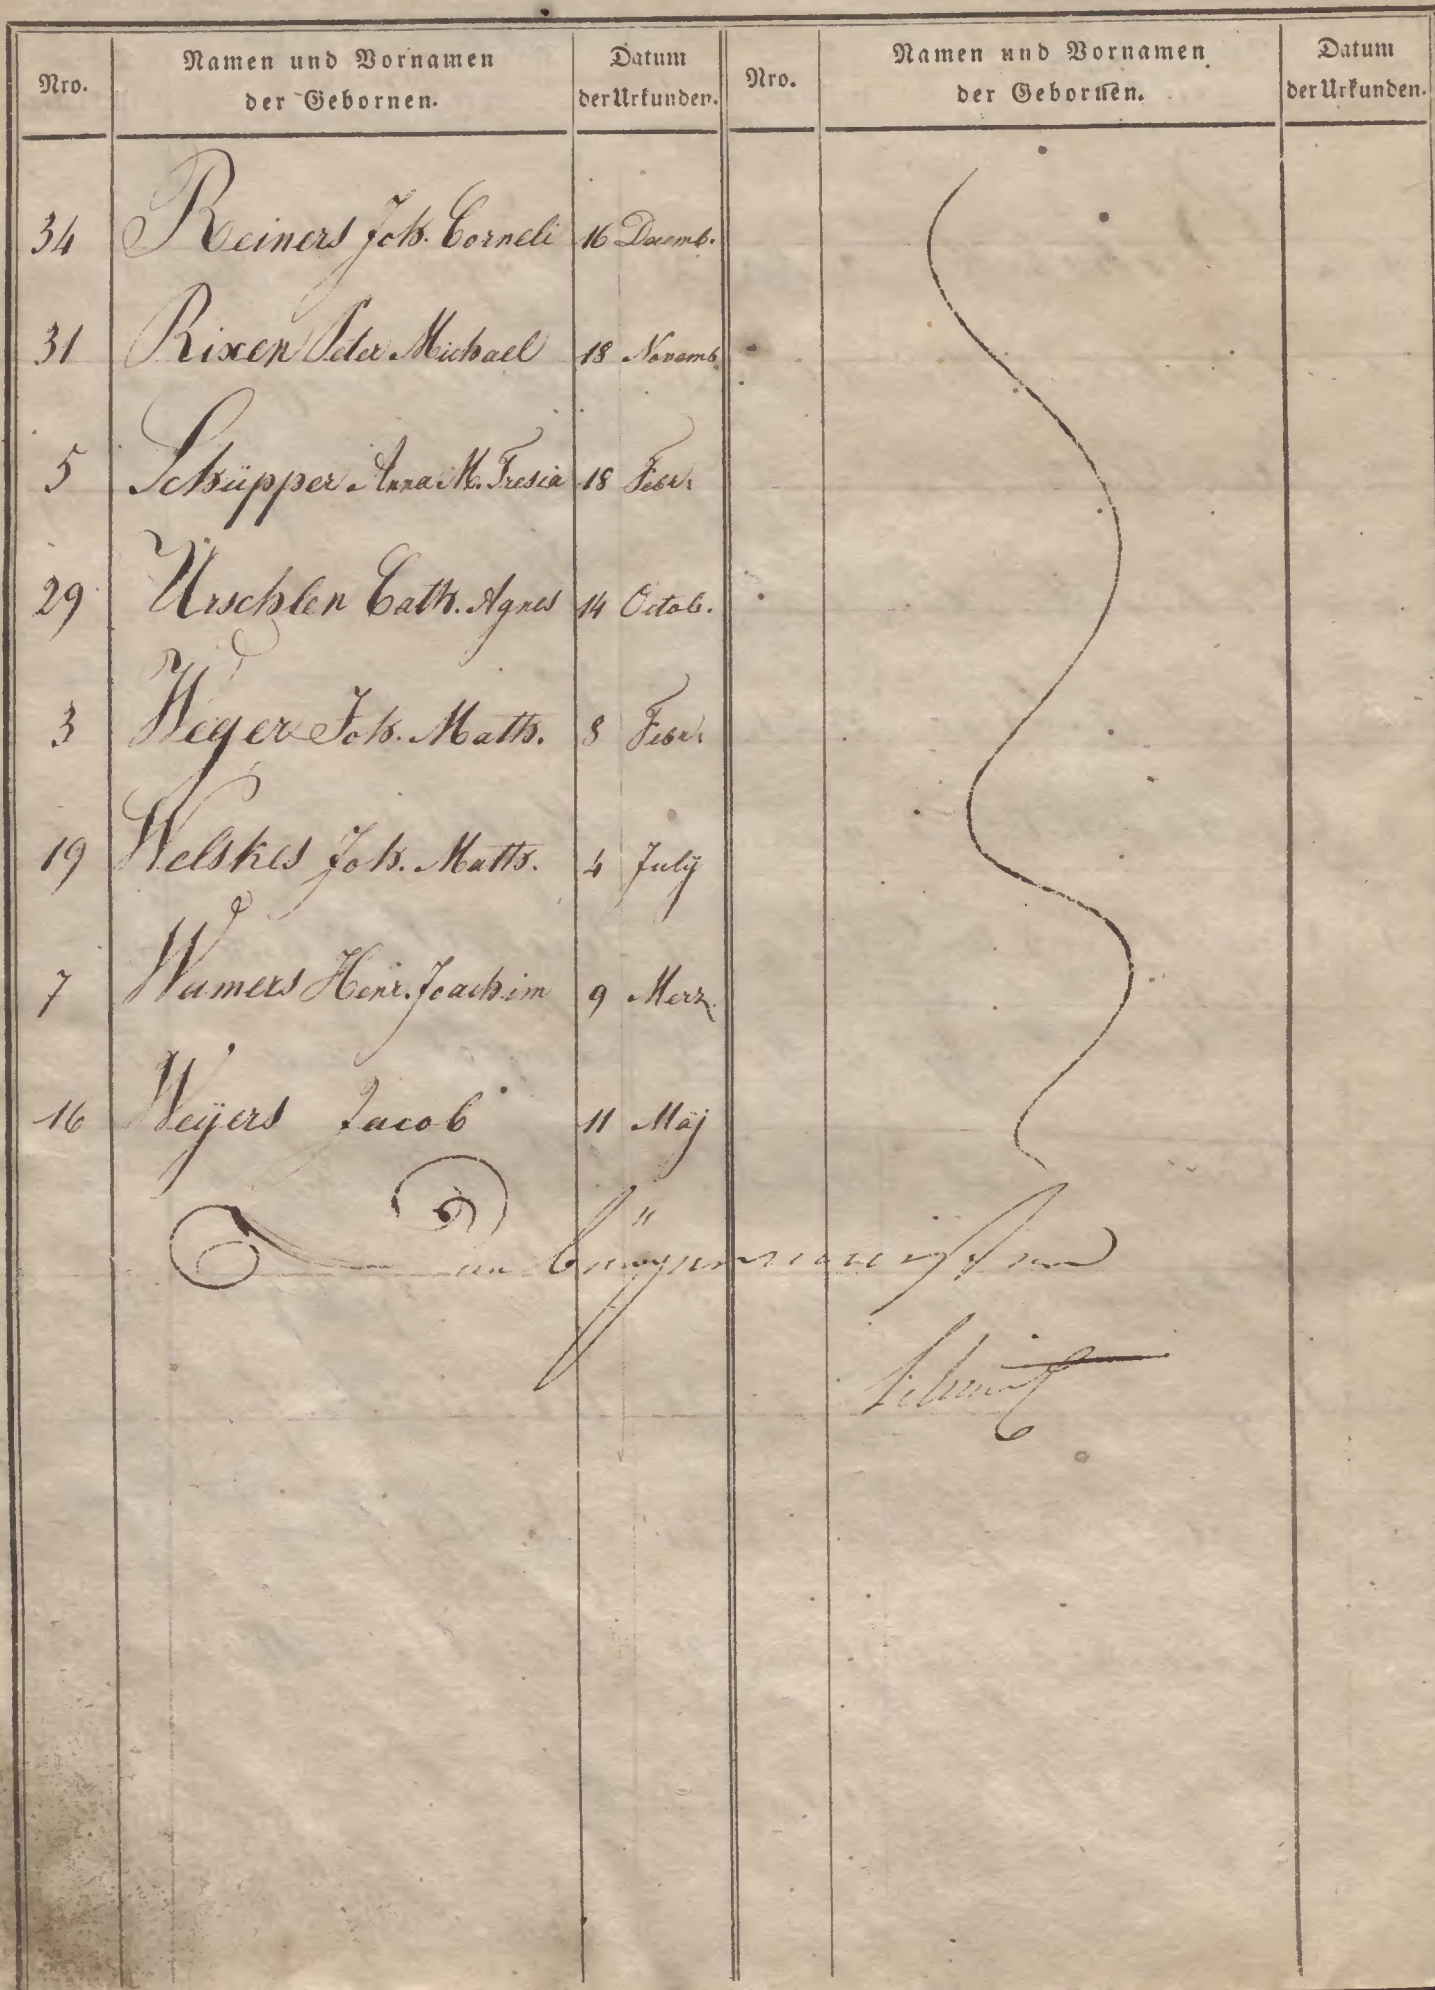 Nro.
Namen und Vornamen
der Gebornen.
Datum
der Urkunden.
Nro.
Namen und Vornamen
der Gebornen.
Datum
der Urkunden.
34 Reiners Joh. Corneli 16 Decemb.
31 Rixen Peter Michael 18 Novemb
5 Schüpper Anna M. Tresia 18 Febr:
29 Urschlen Cath. Agnes 14 Octob.
3 Weger Joh. Math. 8 Febr:
19 Welskes Joh. Math. 4 July
7 Wamers Henr. Joachim 9 Merz
16 Weÿers Jacob 11 Maj
Der Bürgermeister
Schmitz